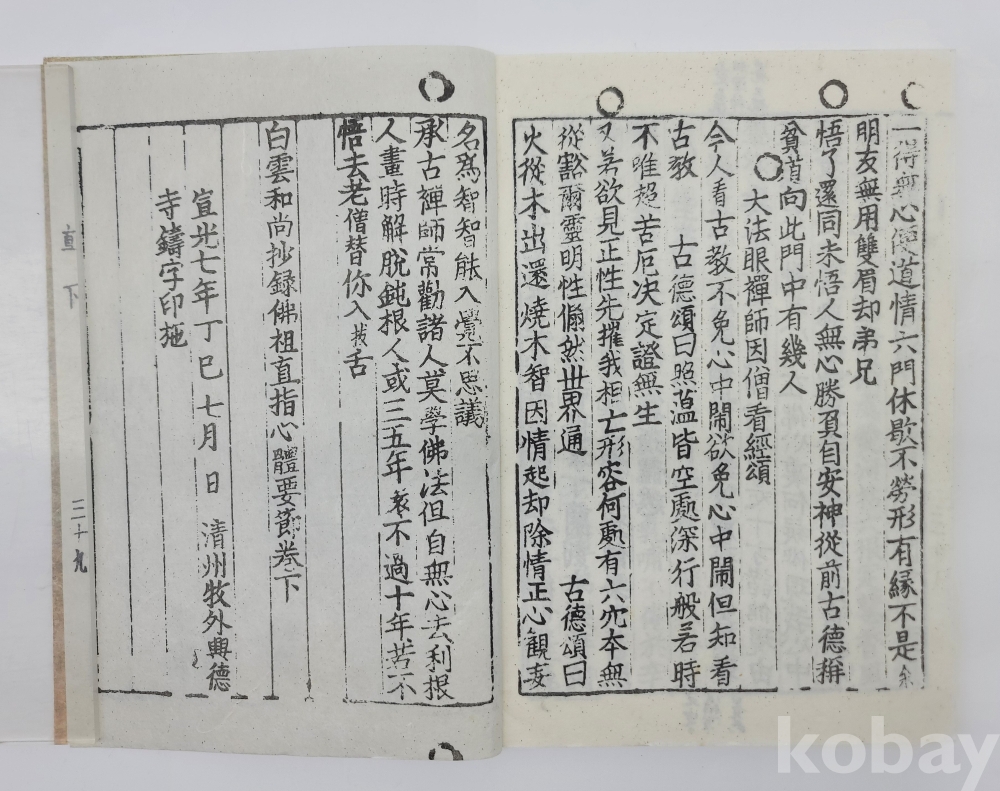 一得無心便道情六門休歇不勞形有緣不是余
朋友無用雙眉却弟兄
悟了還同未悟人無心勝負自安神從前古德稱
貧道向此門中有幾人
大法眼禪師因僧看經頌
今人看古教不免心中閙欲免心中閙但知看
古教 古德頌曰照蘊皆空處深行般若時
不唯超苦厄決定證無生
又若欲見正性先摧我相亡形容何處有六穴本無
從豁爾靈明性翛然世界通 古德頌曰
火從木出還燒木智因情起却除情正心觀妄
名爲智智能入覺不思議
承古禪師常勸諸人莫學佛法但自無心去利根
人畫時解脫鈍根人或三五年遠不過十年苦不
悟去老僧替你入拔舌
白雲和尚抄錄佛祖直指心體要節卷下
宣光七年丁巳七月 日 清州牧外興德
寺鑄字印施
直下 三十九
kobay